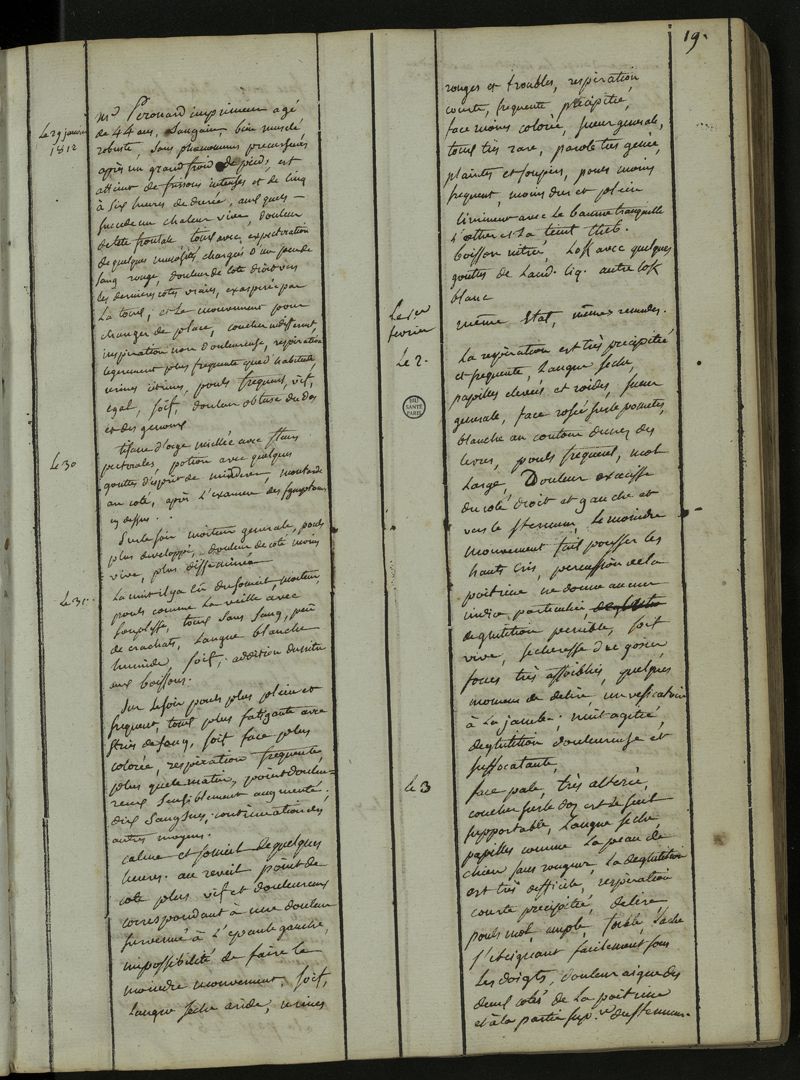 19.
Le 29 janvier
1812
Mr Peronard imprimeur agé
de 44 ans, Sanguin, bien musclé,
robuste, sans phenomenes precurseurs
après un grand froid de pied, est
atteint de frissons intenses et de cinq
à Six heures de durée, auxquels
succede un chaleur vive, douleur
de tete frontale toux avec expectoration
de quelques mucosités, chargées d'un peu de
sang rouge, douleur de coté droit vers
les dernieres cotes vraies, exasperée par
La toux, et Le mouvement pour
changer de place, coucher indifferent,
inspiration non douloureuse, respiration
legerement plus frequente que d'habitude,
urines citrines, pouls frequent, vif,
egal, soif, douleur obtuse du dos
et des genoux
Le 30
tisane d'orge miellée avec fleurs
pectorales, potion avec quelques
gouttes d'esprit de minderer, moutarde
au coté, après L'examen des symptomes
ci dessus.
Sur le soir moiteur generale, pouls
plus developpé, douleur de coté moins
vive, plus disseminée
Le 31.
La nuit il y a eu du sommeil, moiteur
pouls comme La veille avec
souplesse, toux sans sang, peu
de crachats, Langue blanche
humide, soif, addition du nitre
aux boissons.
Sur Le soir pouls plus plein et
frequent, toux plus fatigante avec
stries de sang, soif face plus
colorée, respiration frequente
plus que le matin, point doulou-
reux sensiblement augmenté.
dix Sangsues, continuation des
autres moyens.
calme et sommeil de quelques
heures. au reveil point de
coté plus vif et douloureux
correspondant à une douleur
survenue à L'epaule gauche,
impossibilité de faire Le
moindre mouvement, soif,
Langue seche aride, urines
rouges et troubles, respiration
courte, frequente précipitée,
face moins colorée, sueur generale,
toux très rare, parole tres genée,
plaintes et soupirs, pouls moins
frequent, moins dur et plein
Liniment avec Le baume tranquille
L'ether et La teint Theb.
boisson nitrée, Lok avec quelques
gouttes de Laud. liq. autre lok
blanc
Le 1er
fevrier
même Etat, mêmes remedes.
Le 2.
La respiration est très precipitée
et frequente, Langue seche,
papilles elevées et roides, sueur
generale, face rosée sur les pomettes,
blanche au contour du nez des
levres, pouls frequent, mol
Large, Douleur excessive
du coté droit et gauche et
vers le sternum, Le moindre
mouvement fait pousser les
hauts cris, percussion de la
poitrine ne donne aucun
indice particulier,
deglutition penible, soif
vive, secheresse du gosier,
forces très affoiblies, quelques
momens de delire un vesicatoire
à La jambe. nuit agitée,
deglutition douloureuse et
suffocatante,
Le 3
face pale, très alterée,
coucher sur le dos est Le seul
supportable, Langue seche,
papilles comme La peau de
chien sans rougeur, La deglutition
est très difficile, respiration
courte precipitée, delire
pouls mol, ample, foible, Lache
s'eteignant facilement sous
Les doigts, douleur aigue des
deux cotés de La poitrine
et à la partie sup.re du sternum.
BIU
SANTÉ
PARIS